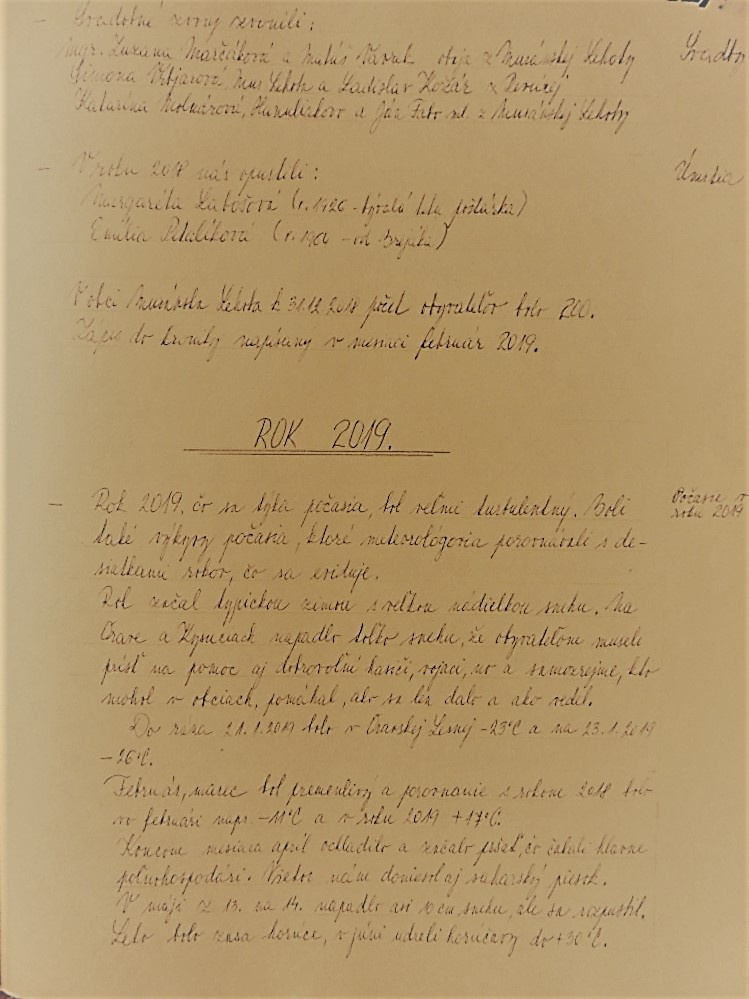 - Svadobné zvony zvonili:
Mgr. Zuzana Marčáková a Matúš obaja z Muránskej Lehoty
Svadby
Simona Mur. Lehota a Ladislav Kožár z
Katarína Molnárová, a Ján Fabo ml. z Muránskej Lehoty
- V roku 2018 nás opustili:
Úmrtia
Margaréta Labošová (r. 1926 - bývalá tu poštárka)
Emília (r. - od
V obci Muránska Lehota k 31.12.2018 počet obyvateľov bolo 200.
Zápis do kroniky napísaný v mesiaci február 2019.
ROK 2019.
- Rok 2019, čo sa týka počasia, bol veľmi turbulentný. Boli
Počasie v
roku 2019
také výkyvy počasia, ktoré meteorológovia porovnávali s de-
siatkami rokov, čo sa eviduje.
Rok začal typickou zimou s veľkou nádielkou snehu. Na
Orave a Kysuciach napadlo toľko snehu, že obyvateľom museli
prísť na pomoc aj dobrovoľní hasiči, vojaci, no a samozrejme, kto
mohol v obciach, pomáhal, ako sa len dalo a ako vedel.
Do rána 21.1.2019 bolo v Oravskej Lesnej -23°C a na 23.1.2019
-26°C.
Február, marec bol premenlivý a porovnanie s rokom 2018 bolo
vo februári napr. -11°C a v roku 2019 +17°C.
Koncom mesiaca apríl ochladilo a začalo pršať, čo čakali hlavne
poľnohospodári. Vietor nám doniesol aj saharský piesok.
V máji z 13. na 14. napadlo asi 10 cm snehu, ale sa rozpustil.
Leto bolo zasa horúce, v júni udreli horúčavy do +30°C.